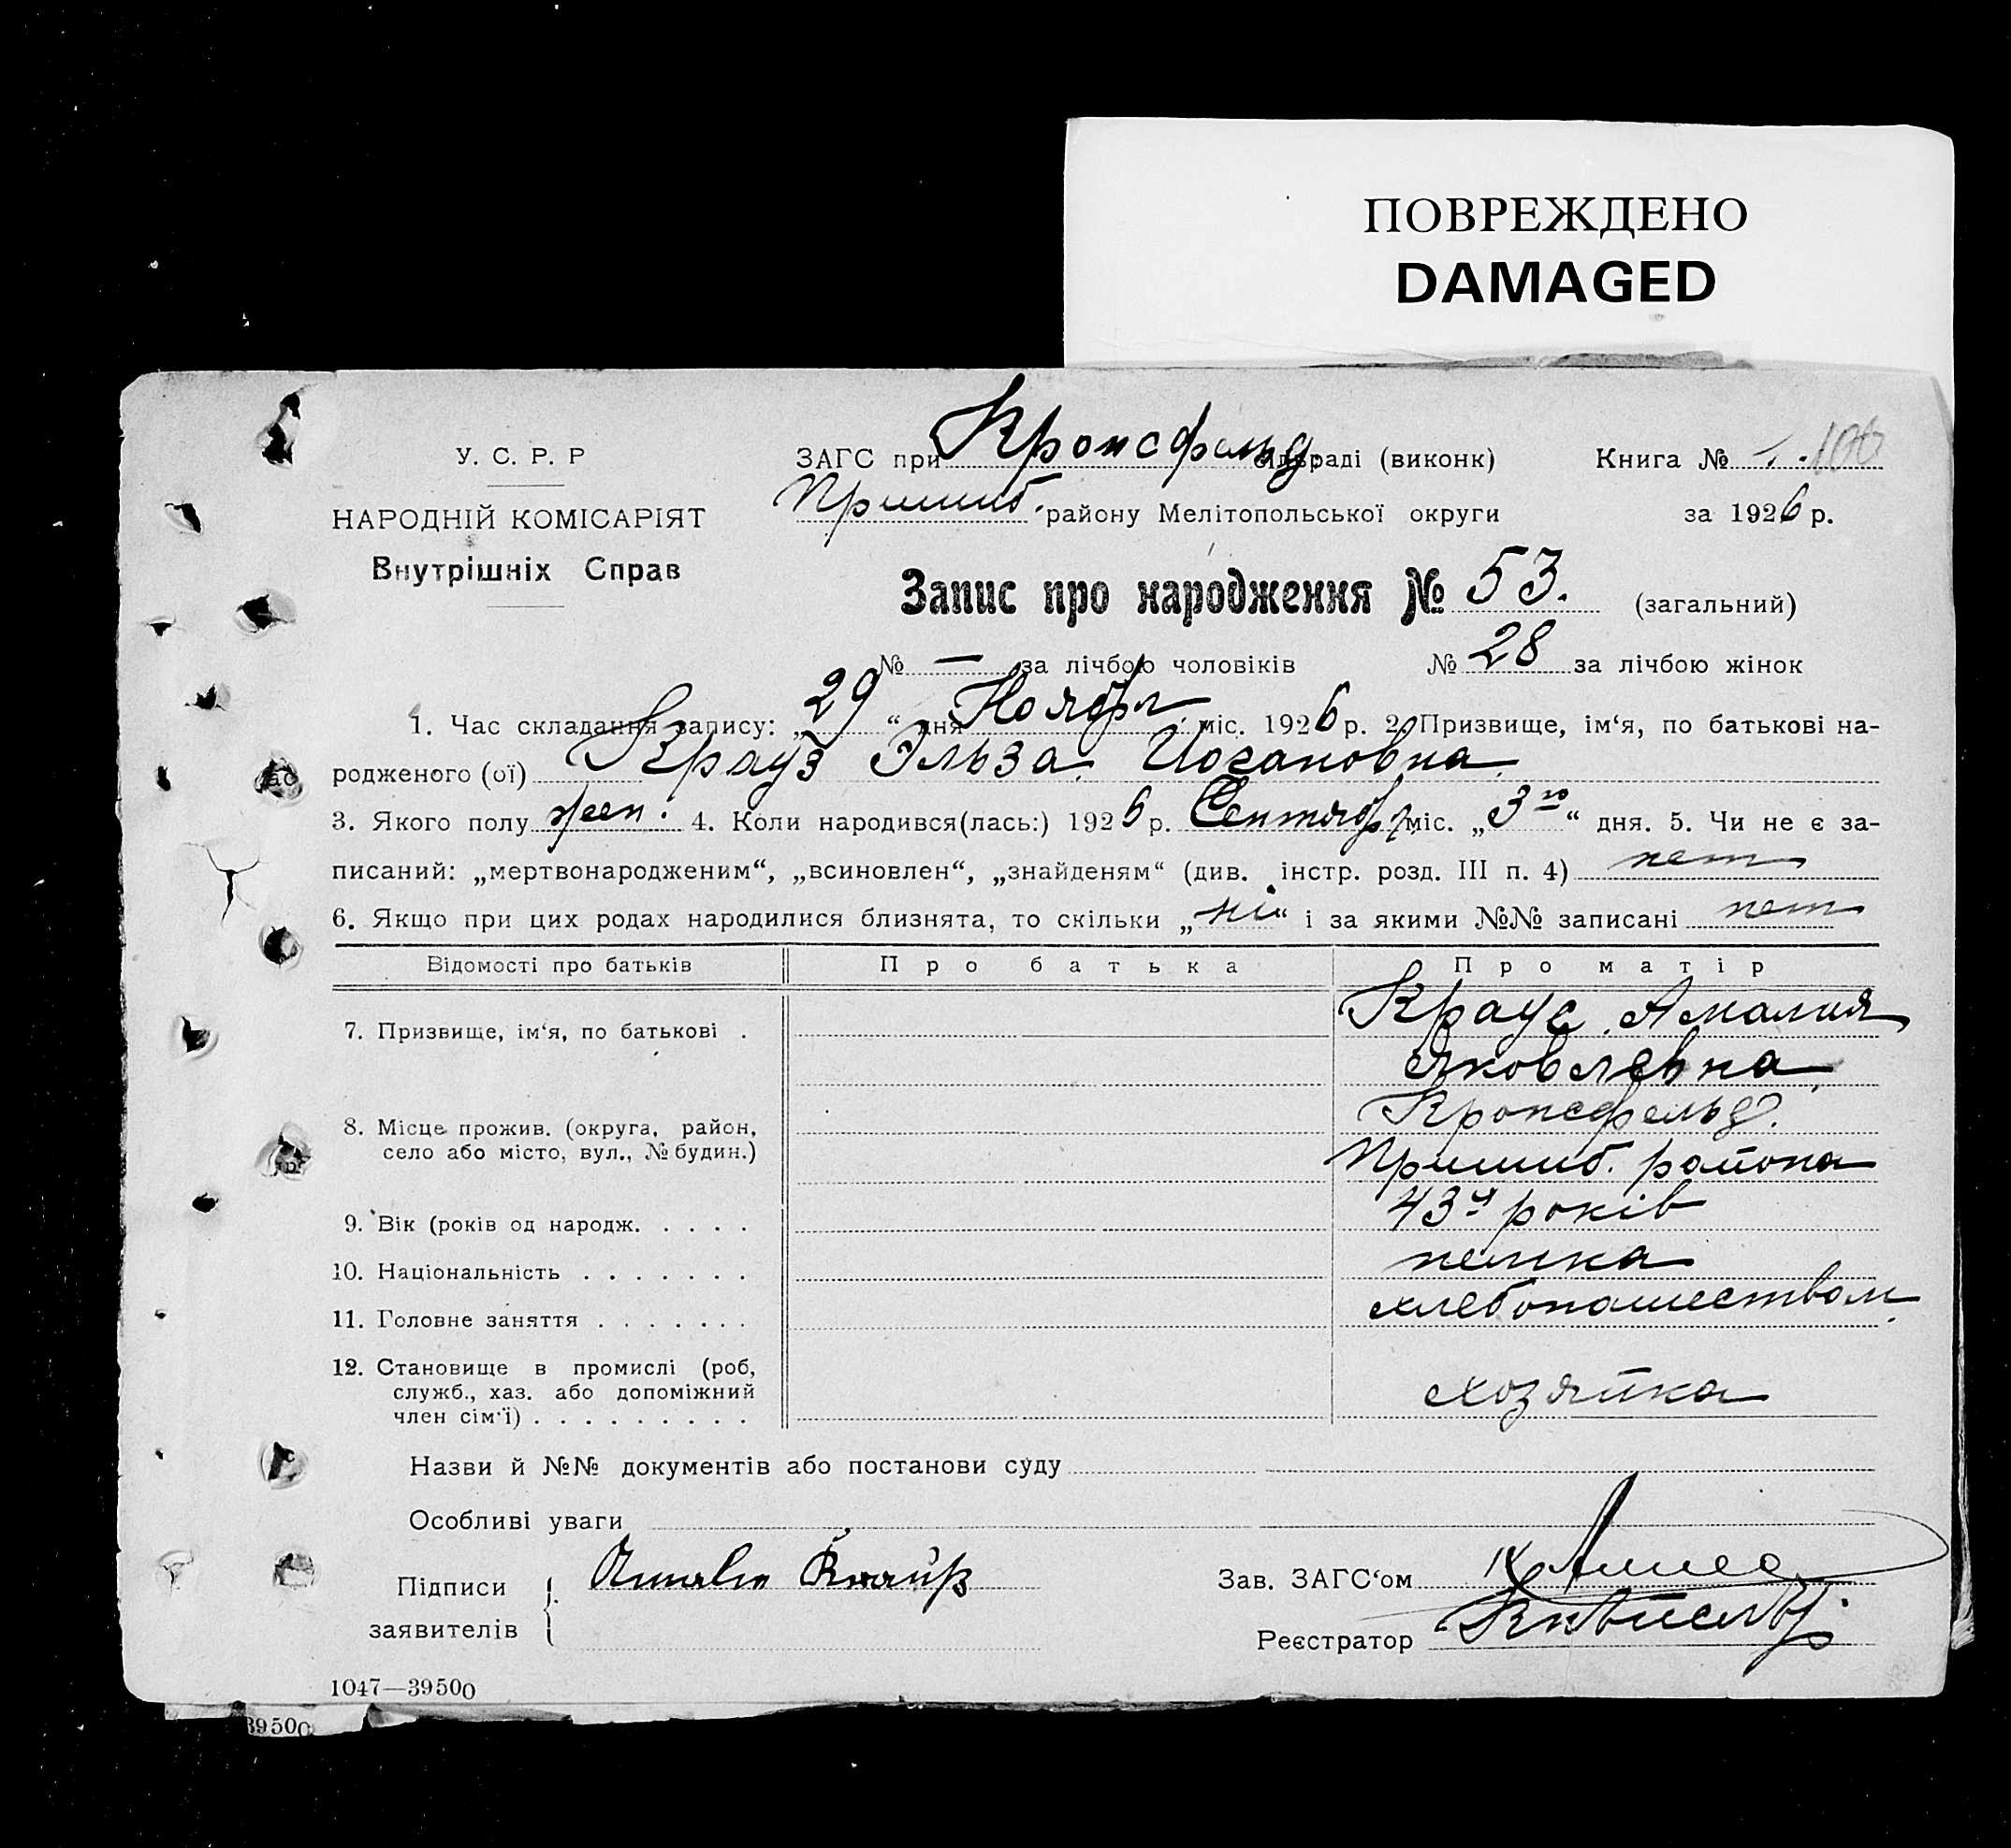 ПОВРЕЖДЕНО
DAMAGED
У. С. Р. Р
НАРОДНІЙ КОМІСАРІЯТ
Внутрішніх Справ
ЗАГС при Кронсфельд. сільраді (виконк)
Книга № 100
Пришиб. району Мелітопольської округи
за 1926 р.
Запис про народження № 53. (загальний)
№ — за лічбою чоловіків № 28 за лічбою жінок
1. Час складання запису: „29“ дня Ноября міс. 1926 р. 2. Призвище, ім‘я, по батькові на-
родженого (ої) Крауз Эльза Иогановна
3. Якого полу жен. 4. Коли народився(лась:) 1926 р. Сентября міс. „3го“ дня. 5. Чи не є за-
писаний: „мертвонародженим“, „всиновлен“, „знайденям“ (див. інстр. розд. III п. 4) нет
6. Якщо при цих родах народилися близнята, то скільки „ні“ і за якими №№ записані нет
Відомості про батьків
Про батька
Про матір
7. Призвище, ім‘я, по батькові .
Краус Амалия
Яковлевна
8. Місце прожив. (округа, район,
село або місто, вул., № будин.)
Кронсфельд.
Пришиб. района
9. Вік (років од народж. . . . .
43 років
10. Національність . . . . . . .
немка
11. Головне заняття . . . . . . .
хлебопашеством.
12. Становище в промислі (роб,
служб., хаз. або допоміжний
член сім‘ї) . . . . . . . . .
хозяйка
Назви й №№ документів або постанови суду
Особливі уваги
Підписи
заявителів
Amalia Krauß
Зав. ЗАГС‘ом
Реєстратор
1047—39500
39500